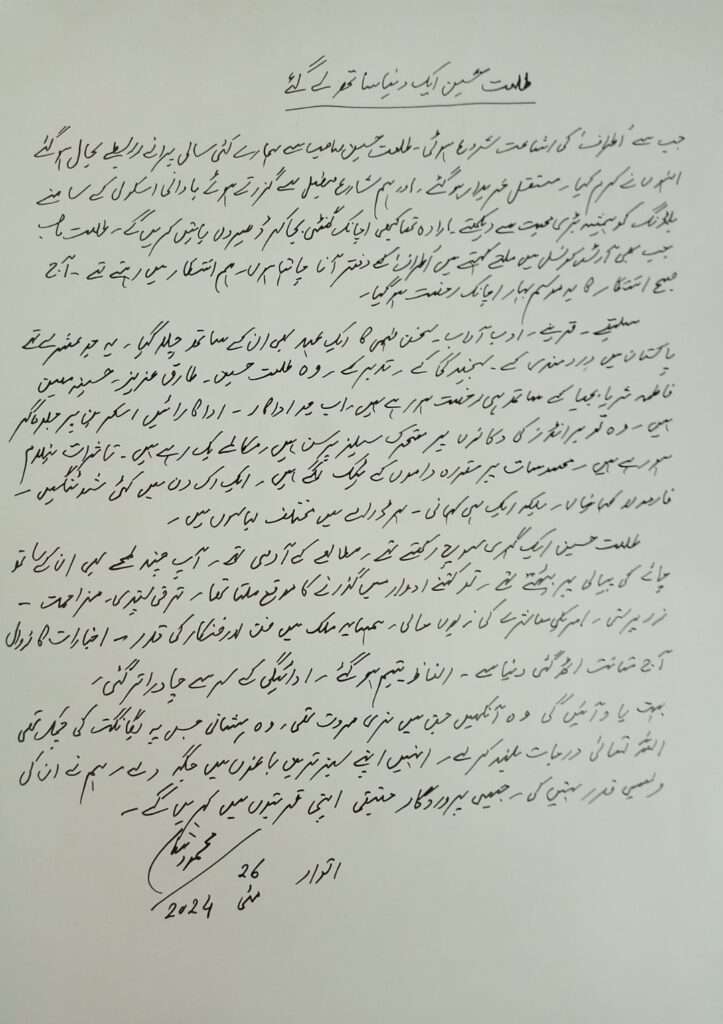 طلعت حسین ایک دنیا ساتھ لے گئے
جب سے 'اطراف' کی اشاعت شروع ہوئی۔ طلعت حسین صاحب سے ہمارے کئی سالی پرانے رابطے بحال ہو گئے
انہوں نے کرم کیا۔ مستقل خریدار ہو گئے۔ اور ہم شارع فیصل سے گزرتے ہوئے بارانی اسکول کے سامنے
بلڈنگ کو ہمیشہ بڑی محبت سے دیکھتے۔ ارادہ تھا کبھی اچانک گھنٹی بجا کر ڈھیروں باتیں کریں گے۔ طلعت صاحب
جب بھی آرٹس کونسل میں ملتے کہتے میں 'اطراف' کے دفتر آنا چاہتا ہوں۔ ہم انتظار میں رہتے تھے۔ آج
صبح انتظار کا یہ موسم بہار اچانک رخصت ہو گیا۔
سلیقے۔ قرینے۔ ادب آداب۔ سخن فہمی کا ایک عہد بھی ان کے ساتھ چلا گیا۔ یہ جو عشرے تھے
پاکستان میں درد مندی کے۔ سنجیدگی کے۔ تدبر کے۔ وہ طلعت حسین۔ طارق عزیز۔ حسینہ معین
فاطمہ ثریا بجیا کے ساتھ ہی رخصت ہو رہے ہیں۔ اب جو اداکار۔ اداکارائیں اسکرینوں پر جلوہ گر
ہیں۔ وہ تو برانڈز کی دکانوں پر متحرک سیلز پرسن ہیں۔ مکالمے بک رہے ہیں۔ تاثرات نیلام
ہو رہے ہیں۔ محسوسات پر مقررہ داموں کے ٹیگ لگے ہیں۔ ایک اک دن میں کئی شوٹنگیں۔
فارمولا کہانیاں۔ بلکہ ایک ہی کہانی۔ ہر ڈرامے میں مختلف لباسوں میں۔
طلعت حسین ایک گہری سوچ رکھتے تھے۔ مطالعے کے آدمی تھے۔ آپ چند لمحے بھی ان کے ساتھ
چائے کی پیالی پر بیٹھتے تھے۔ تو کتنے ادوار میں گزرنے کا موقع ملتا تھا۔ ترقی پسندی۔ مزاحمت۔
زر پرستی۔ امریکی معاشرے کی زبوں حالی۔ ہمسایہ ملک میں فن اور فنکار کی قدر۔ اخبارات کا زوال
آج متانت اٹھ گئی دنیا سے۔ الفاظ یتیم ہو گئے۔ ادائیگی کے سر سے چادر اتر گئی۔
بہت یاد آئیں گی وہ آنکھیں جن میں نری مروت تھی۔ وہ پیشانی جس پہ یگانگت کی چمک تھی
اللہ تعالیٰ درجات بلند کرے۔ انہیں اپنے سبز ترین باغوں میں جگہ دے۔ ہم نے ان کی
ویسی قدر نہیں کی۔ جیسی پروردگار حقیقی اپنی قربتوں میں کریں گے۔
محمود شام
اتوار 26
مئی 2024